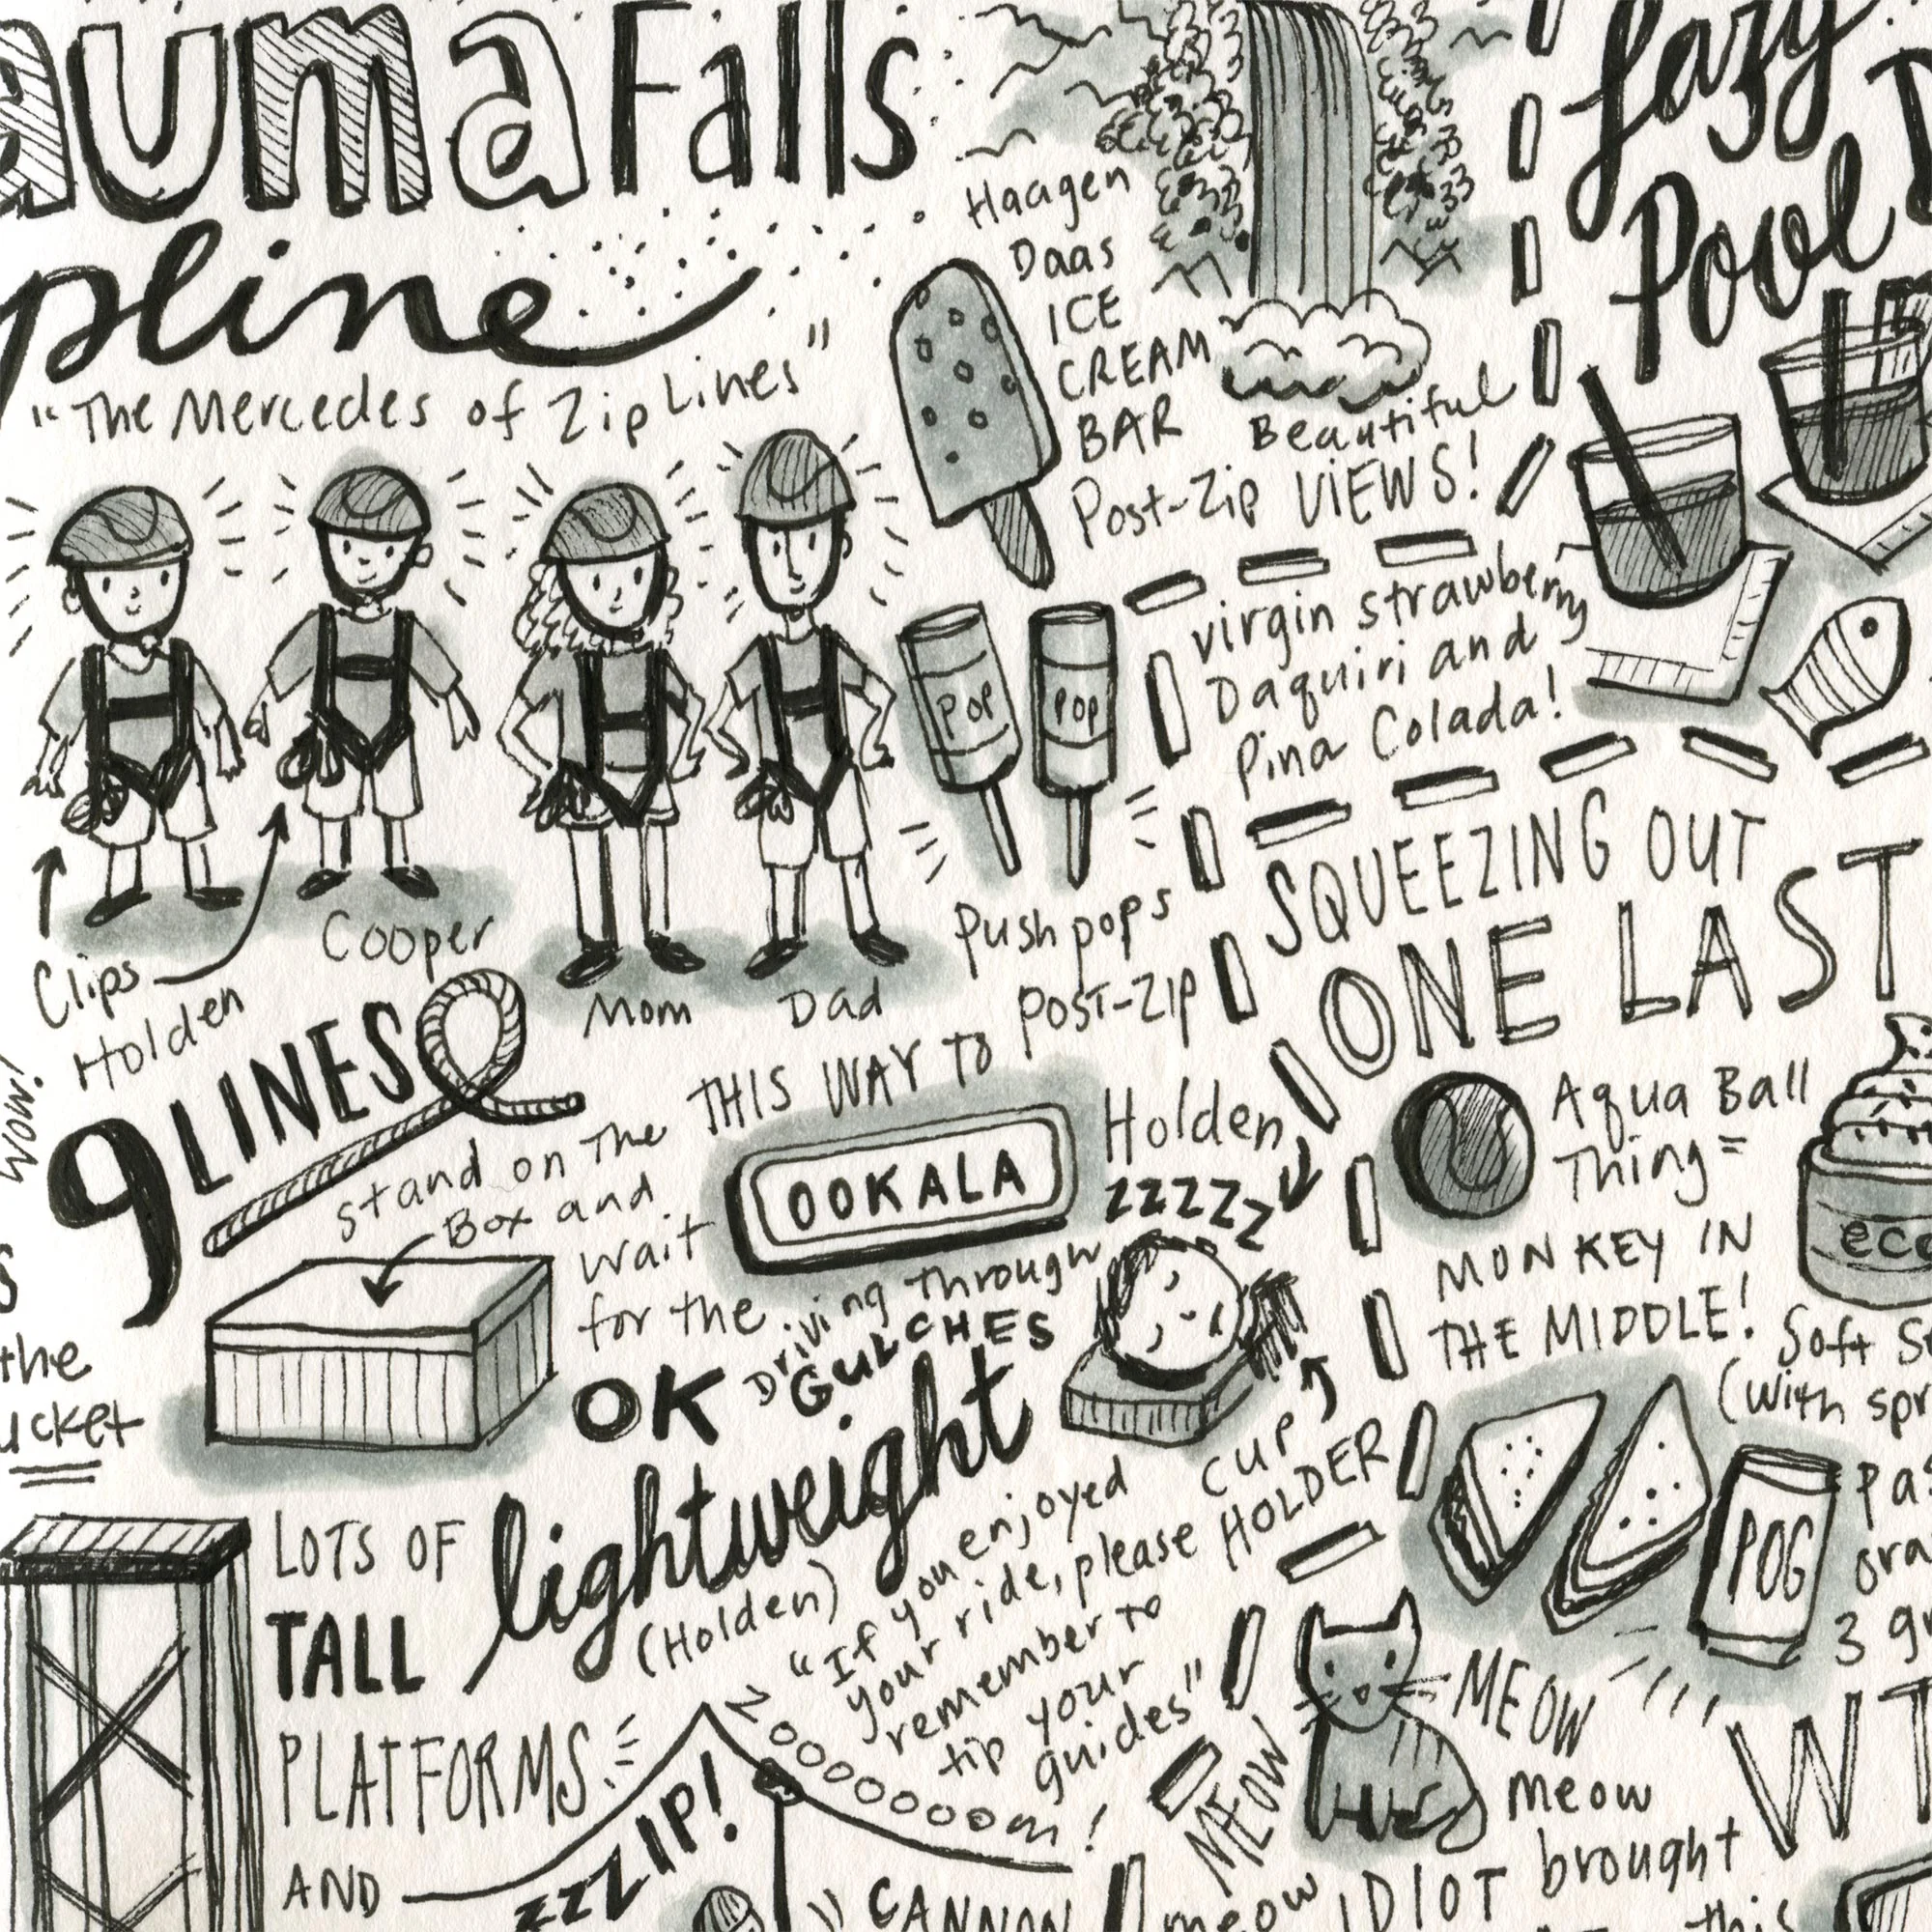 auma Falls
pline
"The Mercedes of Zip Lines"
Haagen
Daas
ICE
CREAM
BAR
Post-Zip
Beautiful
VIEWS!
Lazy
Pool
virgin strawberry
Daquiri and
Pina Colada!
POP
POP
Push pops
POST-ZIP
Clips
Holden
Cooper
Mom
Dad
WOW!
9 LINES
Stand on the
Box and
wait
for the
OK
THIS WAY TO
OOKALA
Driving through
GULCHES
Holden
ZZZZZ
CUP
HOLDER
the
ucket
lightweight
(Holden)
LOTS OF
TALL
PLATFORMS
AND
"If you enjoyed
your ride, please
remember to
tip your
guides"
zoooooooom!
zzZZIP!
CANNON
SQUEEZING OUT
ONE LAST
Aqua Ball
Thing =
MONKEY IN
THE MIDDLE!
eco
Soft S
(with spr
POG
pas
ora
3 g
MEOW
MEOW
meow
meow
IDIOT brought
this